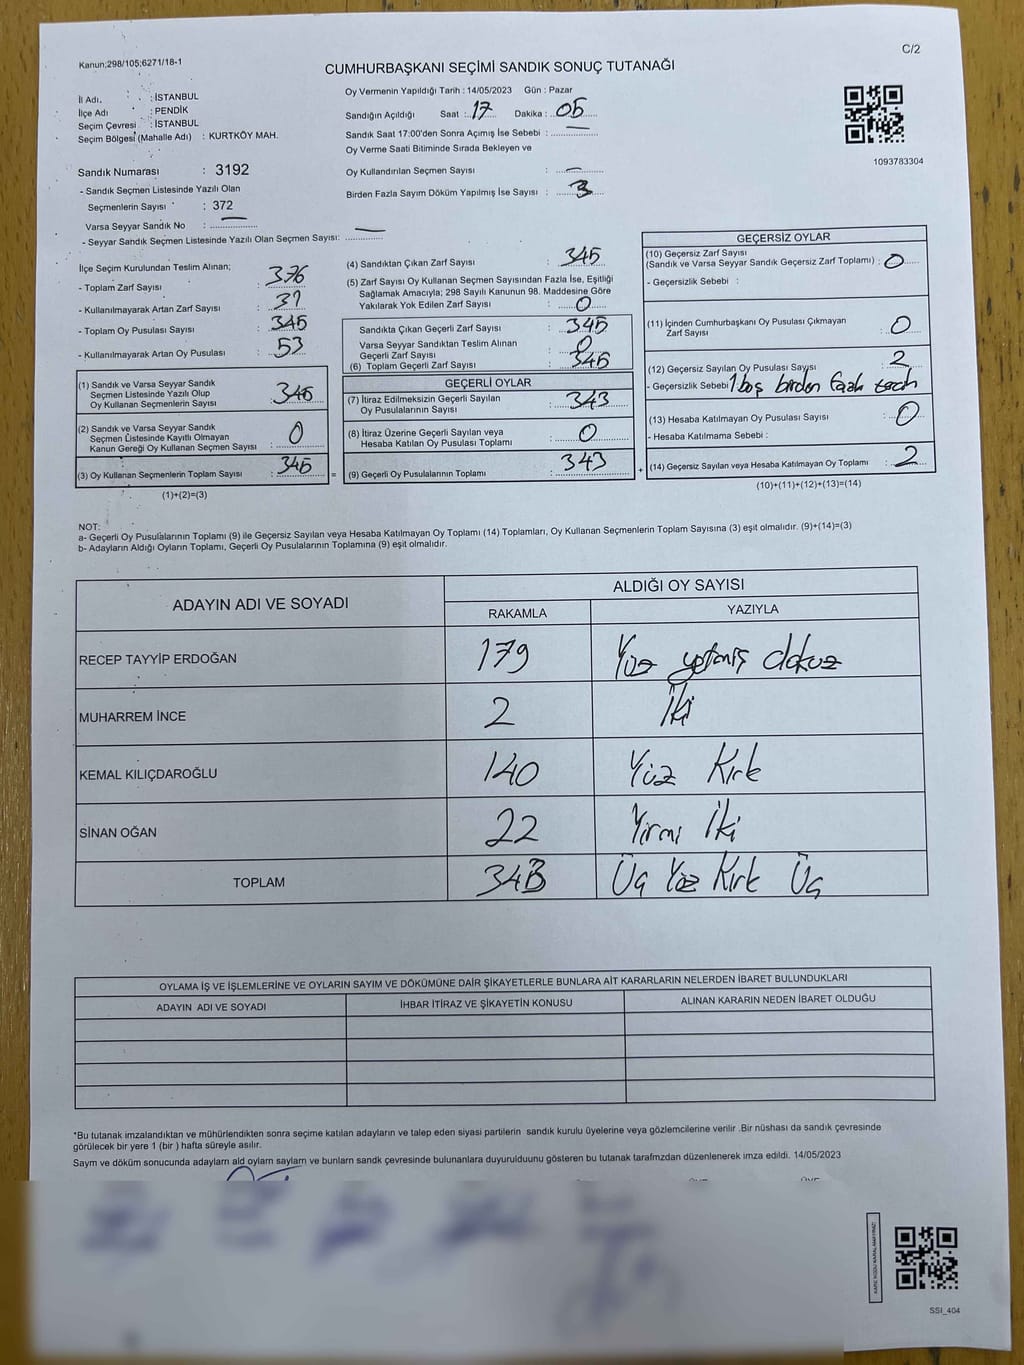 Kanun;298/105;6271/18-1
C/2
CUMHURBAŞKANI SEÇİMİ SANDIK SONUÇ TUTANAĞI
İl Adı. : İSTANBUL
İlçe Adı : PENDİK
Seçim Çevresi : İSTANBUL
Seçim Bölgesi (Mahalle Adı) : KURTKÖY MAH.
Oy Vermenin Yapıldığı Tarih : 14/05/2023 Gün : Pazar
Sandığın Açıldığı Saat : 17 Dakika : 05
Sandık Saat 17:00'den Sonra Açımış İse Sebebi : —
Oy Verme Saati Bitiminde Sırada Bekleyen ve
Oy Kullandırılan Seçmen Sayısı : —
Birden Fazla Sayım Döküm Yapılmış İse Sayısı : 3
1093783304
Sandık Numarası : 3192
- Sandık Seçmen Listesinde Yazılı Olan
Seçmenlerin Sayısı : 372
Varsa Seyyar Sandık No : —
- Seyyar Sandık Seçmen Listesinde Yazılı Olan Seçmen Sayısı: —
İlçe Seçim Kurulundan Teslim Alınan;
- Toplam Zarf Sayısı : 376
- Kullanılmayarak Artan Zarf Sayısı : 31
- Toplam Oy Pusulası Sayısı : 345
- Kullanılmayarak Artan Oy Pusulası : 53
(1) Sandık ve Varsa Seyyar Sandık
Seçmen Listesinde Yazılı Olup
Oy Kullanan Seçmenlerin Sayısı : 345
(2) Sandık ve Varsa Seyyar Sandık
Seçmen Listesinde Kayıtlı Olmayan
Kanun Gereği Oy Kullanan Seçmen Sayısı : 0
(3) Oy Kullanan Seçmenlerin Toplam Sayısı : 345
(1)+(2)=(3)
=
(4) Sandıktan Çıkan Zarf Sayısı : 345
(5) Zarf Sayısı Oy Kullanan Seçmen Sayısından Fazla İse, Eşitliği
Sağlamak Amacıyla; 298 Sayılı Kanunun 98. Maddesine Göre
Yakılarak Yok Edilen Zarf Sayısı : 0
Sandıkta Çıkan Geçerli Zarf Sayısı : 345
Varsa Seyyar Sandıktan Teslim Alınan
Geçerli Zarf Sayısı : 0
(6) Toplam Geçerli Zarf Sayısı : 345
GEÇERLİ OYLAR
(7) İtiraz Edilmeksizin Geçerli Sayılan
Oy Pusulalarının Sayısı : 343
(8) İtiraz Üzerine Geçerli Sayılan veya
Hesaba Katılan Oy Pusulası Toplamı : 0
(9) Geçerli Oy Pusulalarının Toplamı : 343
+
GEÇERSİZ OYLAR
(10) Geçersiz Zarf Sayısı
(Sandık ve Varsa Seyyar Sandık Geçersiz Zarf Toplamı) : 0
- Geçersizlik Sebebi :
(11) İçinden Cumhurbaşkanı Oy Pusulası Çıkmayan
Zarf Sayısı : 0
(12) Geçersiz Sayılan Oy Pusulası Sayısı : 2
- Geçersizlik Sebebi 1 boş birden fazla tercih
(13) Hesaba Katılmayan Oy Pusulası Sayısı : 0
- Hesaba Katılmama Sebebi :
(14) Geçersiz Sayılan veya Hesaba Katılmayan Oy Toplamı : 2
(10)+(11)+(12)+(13)=(14)
NOT:
a- Geçerli Oy Pusulalarının Toplamı (9) ile Geçersiz Sayılan veya Hesaba Katılmayan Oy Toplamı (14) Toplamları, Oy Kullanan Seçmenlerin Toplam Sayısına (3) eşit olmalıdır. (9)+(14)=(3)
b- Adayların Aldığı Oyların Toplamı, Geçerli Oy Pusulalarının Toplamına (9) eşit olmalıdır.
ADAYIN ADI VE SOYADI
ALDIĞI OY SAYISI
RAKAMLA YAZIYLA
RECEP TAYYİP ERDOĞAN 179 Yüz yetmiş dokuz
MUHARREM İNCE 2 İki
KEMAL KILIÇDAROĞLU 140 Yüz Kırk
SİNAN OĞAN 22 Yirmi İki
TOPLAM 343 Üç Yüz Kırk Üç
OYLAMA İŞ VE İŞLEMLERİNE VE OYLARIN SAYIM VE DÖKÜMÜNE DAİR ŞİKAYETLERLE BUNLARA AİT KARARLARIN NELERDEN İBARET BULUNDUKLARI
ADAYIN ADI VE SOYADI İHBAR İTİRAZ VE ŞİKAYETİN KONUSU ALINAN KARARIN NEDEN İBARET OLDUĞU
*Bu tutanak imzalandıktan ve mühürlendikten sonra seçime katılan adayların ve talep eden siyasi partilerin sandık kurulu üyelerine veya gözlemcilerine verilir .Bir nüshası da sandık çevresinde
görülecek bir yere 1 (bir ) hafta süreyle asılır.
Saym ve döküm sonucunda adaylarn ald oylarn saylarn ve bunlarn sandk çevresinde bulunanlara duyurulduunu gösteren bu tutanak tarafmzdan düzenlenerek imza edildi. 14/05/2023
SSI_404